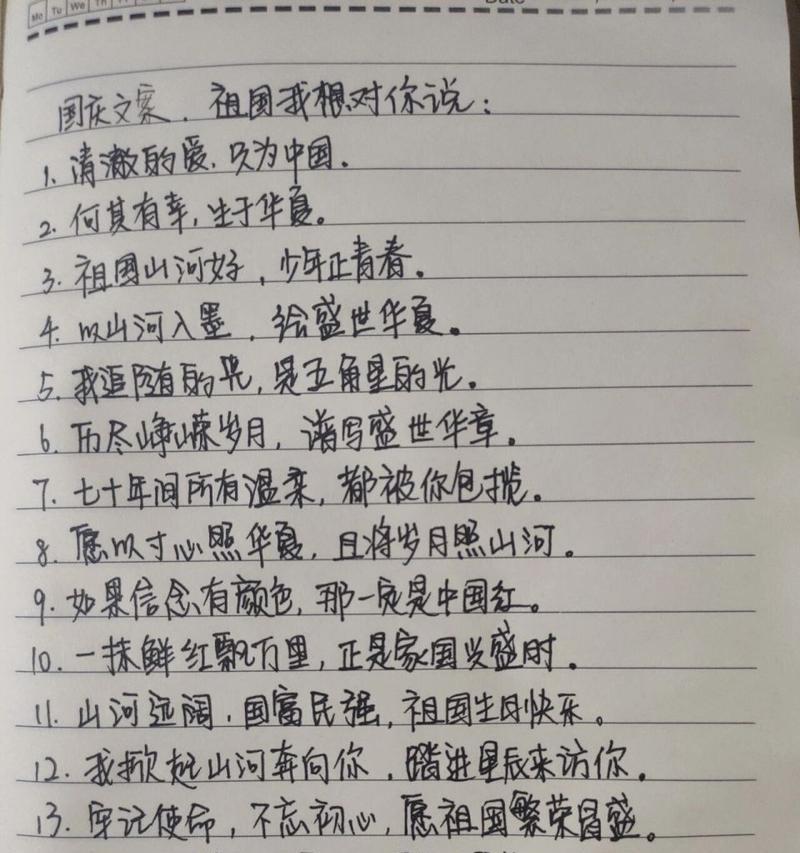 Mo Tu We Th
Date
国庆文案，祖国我想对你说：
1. 清澈的爱，只为中国。
2. 何其有幸，生于华夏。
3. 祖国山河好，少年正青春。
4. 以山河入墨，给盛世华夏。
5. 我追随的光，是五角星的光。
6. 历尽峥嵘岁月，谱写盛世华章。
7. 七十年间所有温柔，都被你包揽。
8. 愿以寸心照华夏，且将岁月照山河。
9. 如果信念有颜色，那一定是中国红。
10. 一抹鲜红飘万里，正是家国兴盛时。
11. 山河远阔，国富民强，祖国生日快乐。
12. 我掀起山河奔向你，踏进星辰来访你。
13. 牢记使命，不忘初心，愿祖国繁荣昌盛。